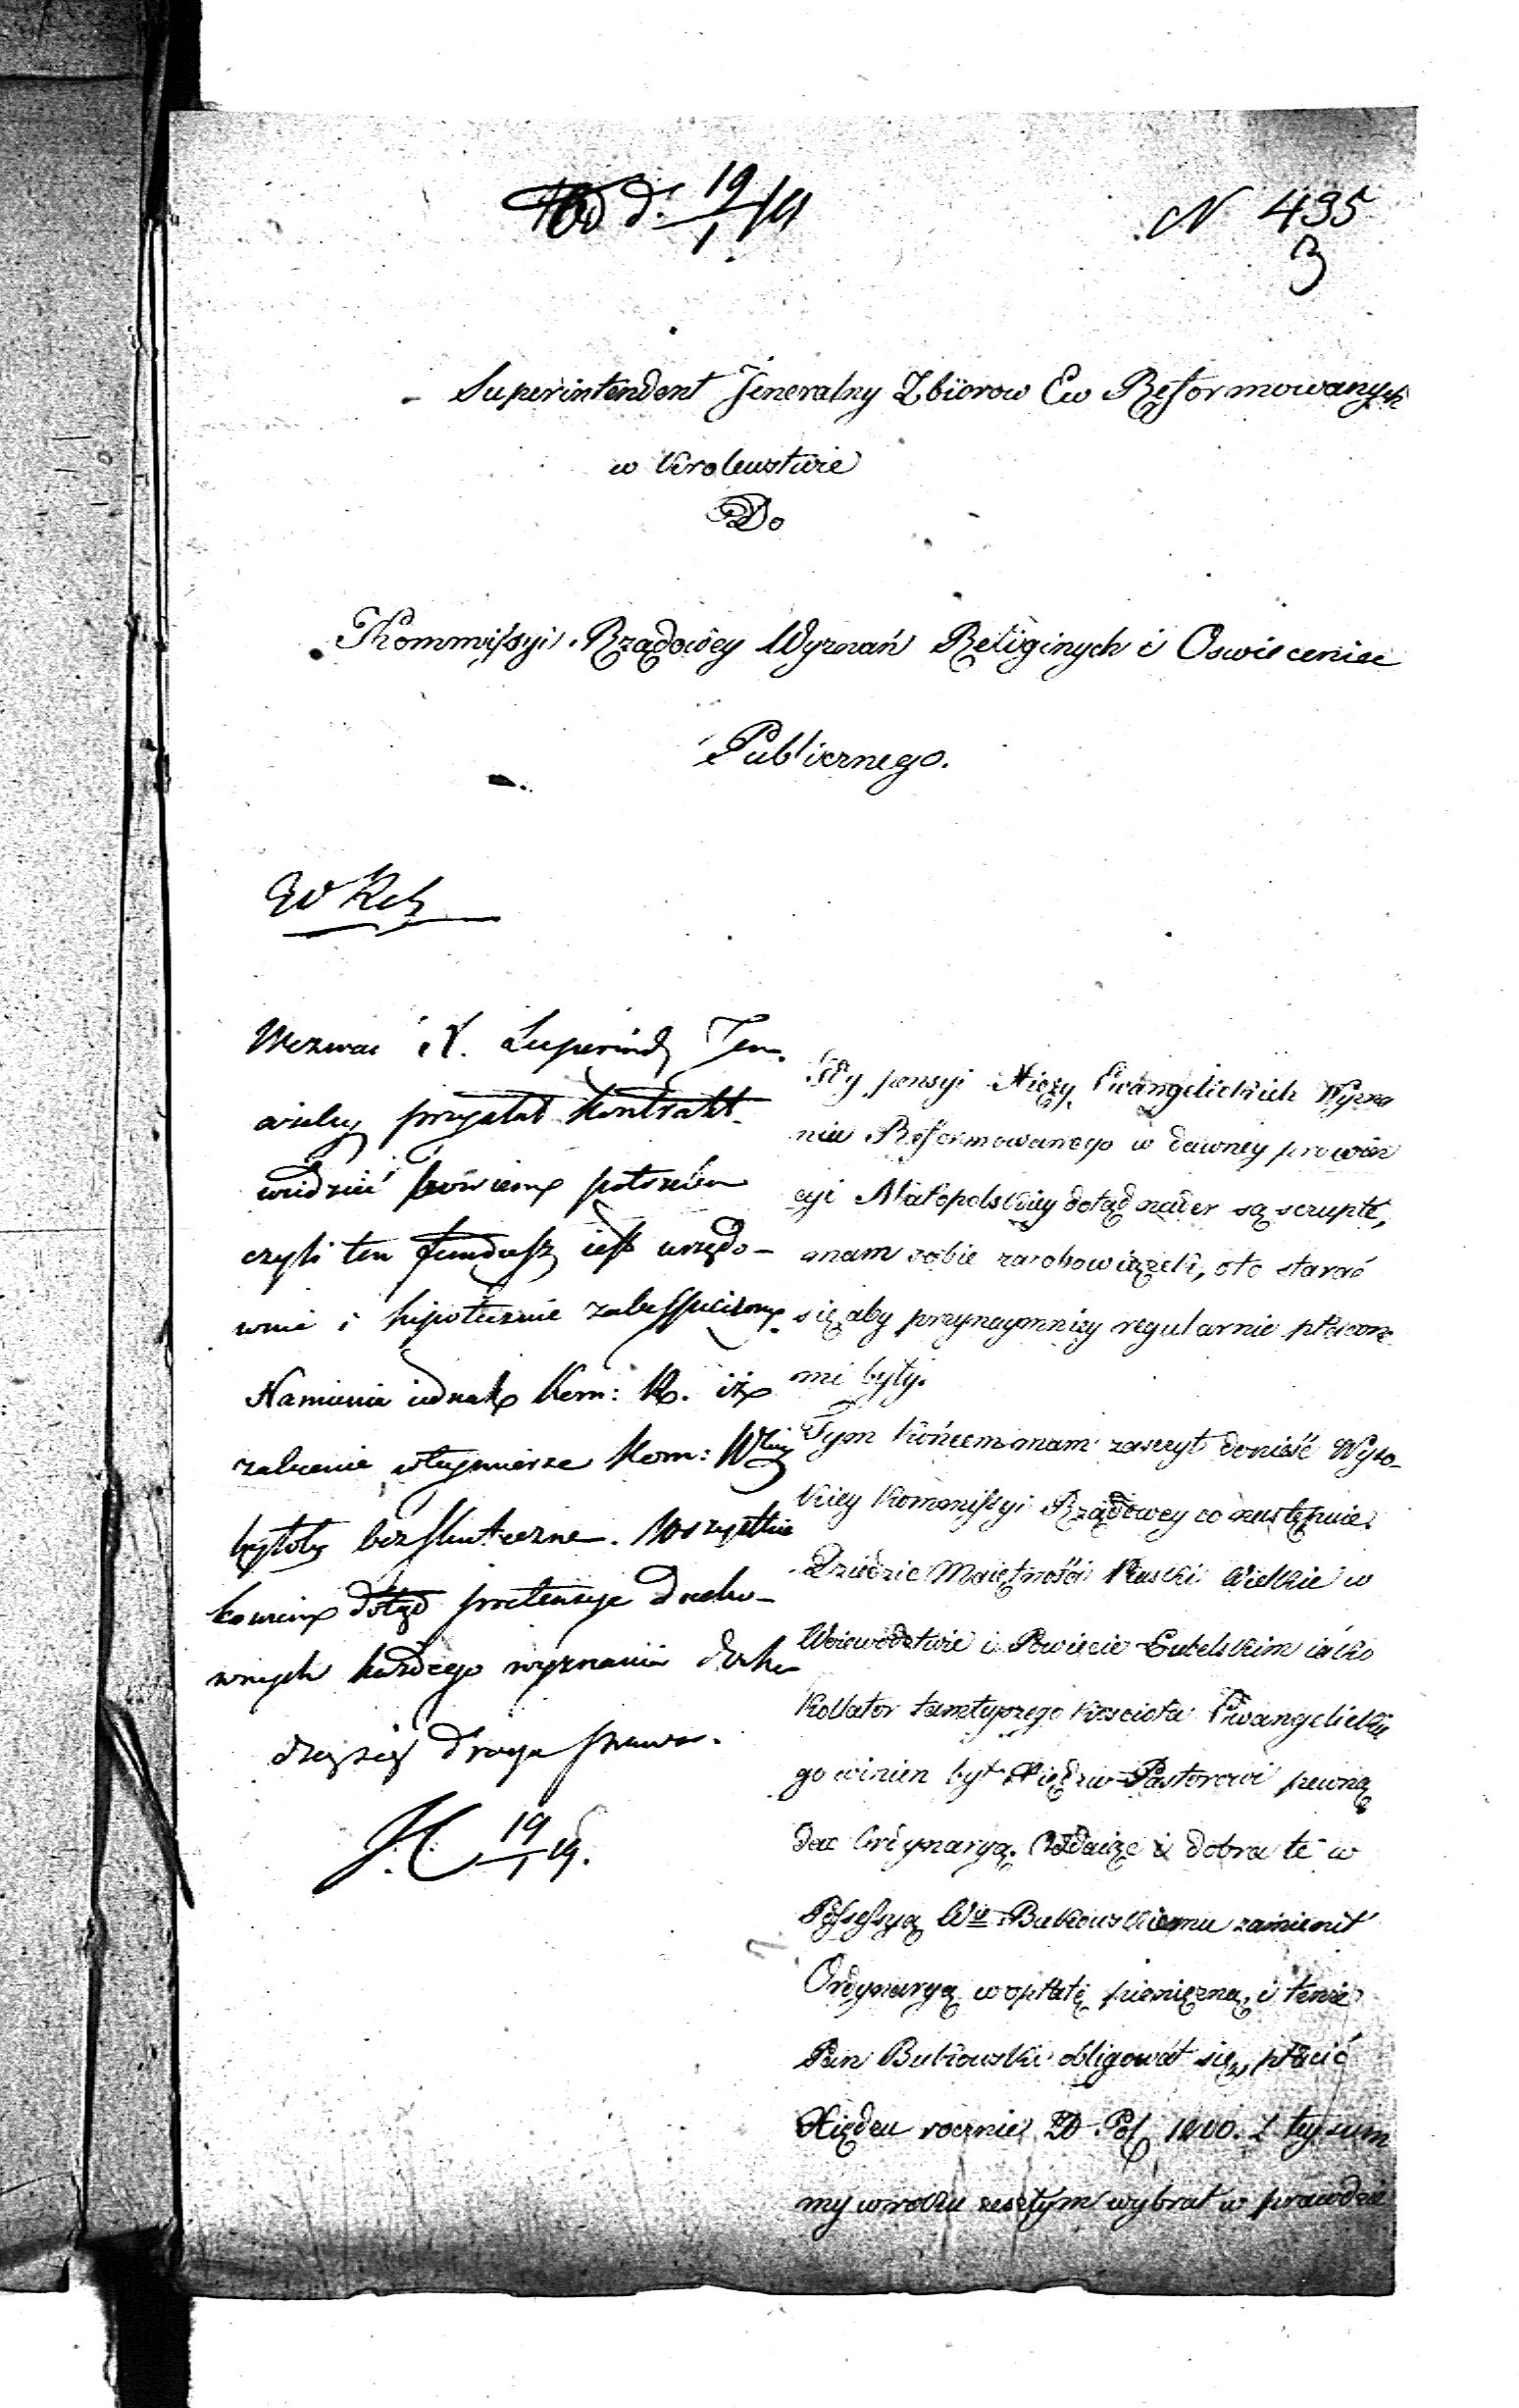 d. 19/1 19
N 435
3
Superintendent Jeneralny Zbiorow Ew Reformowanych
w Krolewstwie
Do
Kommissyi Rządowey Wyznań Religinych i Oswiecenia
Publicznego.
Wezwać X. Superind Jen.
ażeby przysłał kontrakt
widzieć bowiem potrzeba
czyli ten fundusz iest urzędo-
wnie i hipotecznie zabespieczony.
Namienia iednak Kom: R. iż
zalecenie w tey mierze Kom: Wkiey
byłoby bezskuteczne. Wszystkie
bowiem dotąd pretensye Ducho-
wnych każdego wyznania docho-
dzą się drogą prawa.
19/1 19.
Gdy pensyi Xięży Ewangelickich Wyzna
nia Reformowanego w dawney prowin
cyi Małopolskiey dotąd nader są szczupłe,
mam sobie za obowiązek, oto starać
się aby przynaymniey regularnie płacone
mi były.
Tym końcem mam zaszczyt donieść Wyso-
kiey Kommissyi Rządowey co następuie.
Dziedzic Maiętności Piaski Wielkie w
Woiewodztwie i Powiecie Lubelskim iako
Kollator tamtyszego Kościoła Ewangelickie
go winien był Xiędzu Pastorowi pewną
dać Ordynaryą. Oddaiąc iż dobra te w
Possessyą Wu Bukowskiemu zamienił
Ordynaryą w opłatę pieniężną, i tenże
Pan Bukowski obligował się płacić
Xiędzu rocznie Zł Pol 1200. Z tey sum
my w roku zeszłym wybrał w prawdzie